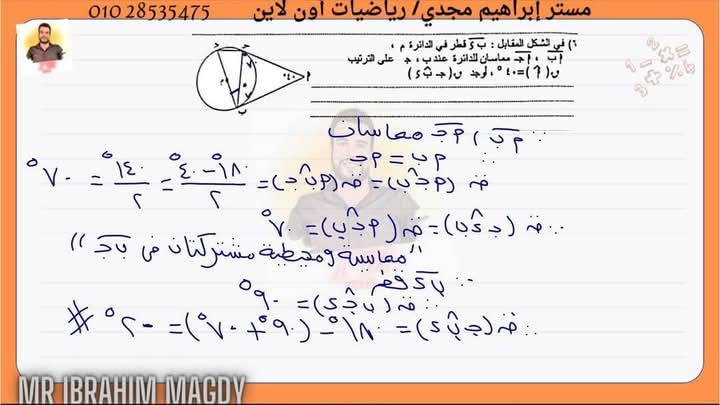 مستر إبراهيم مجدي/ رياضيات أون لاين 010 28535475
٦) في الشكل المقابل : ب ء قطر في الدائرة م ،
أ ب ، أ جـ مماسان للدائرة عند ب ، جـ على الترتيب
ق(أ) = ٤٠° ، أوجد ق(جـ ب ء)
∵ م ب ، م جـ مماسان
∴ م ب = م جـ
ق (م جـ ب) = ق (م ب جـ) = (١٨٠° - ٤٠°)/٢ = ١٤٠°/٢ = ٧٠°
∴ ق (جـ ء ب) = ق (م جـ ب) = ٧٠°
"مماسية ومحيطية مشتركتان في ب جـ"
∵ ب ء قطر
∴ ق (ب جـ ء) = ٩٠°
∴ ق (جـ ب ء) = ١٨٠° - (٩٠° + ٧٠°) = ٢٠° #
MR IBRAHIM MAGDY